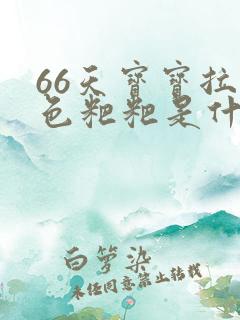 66天宝宝拉
色粑粑是什
白箩染
未经同意禁止转载